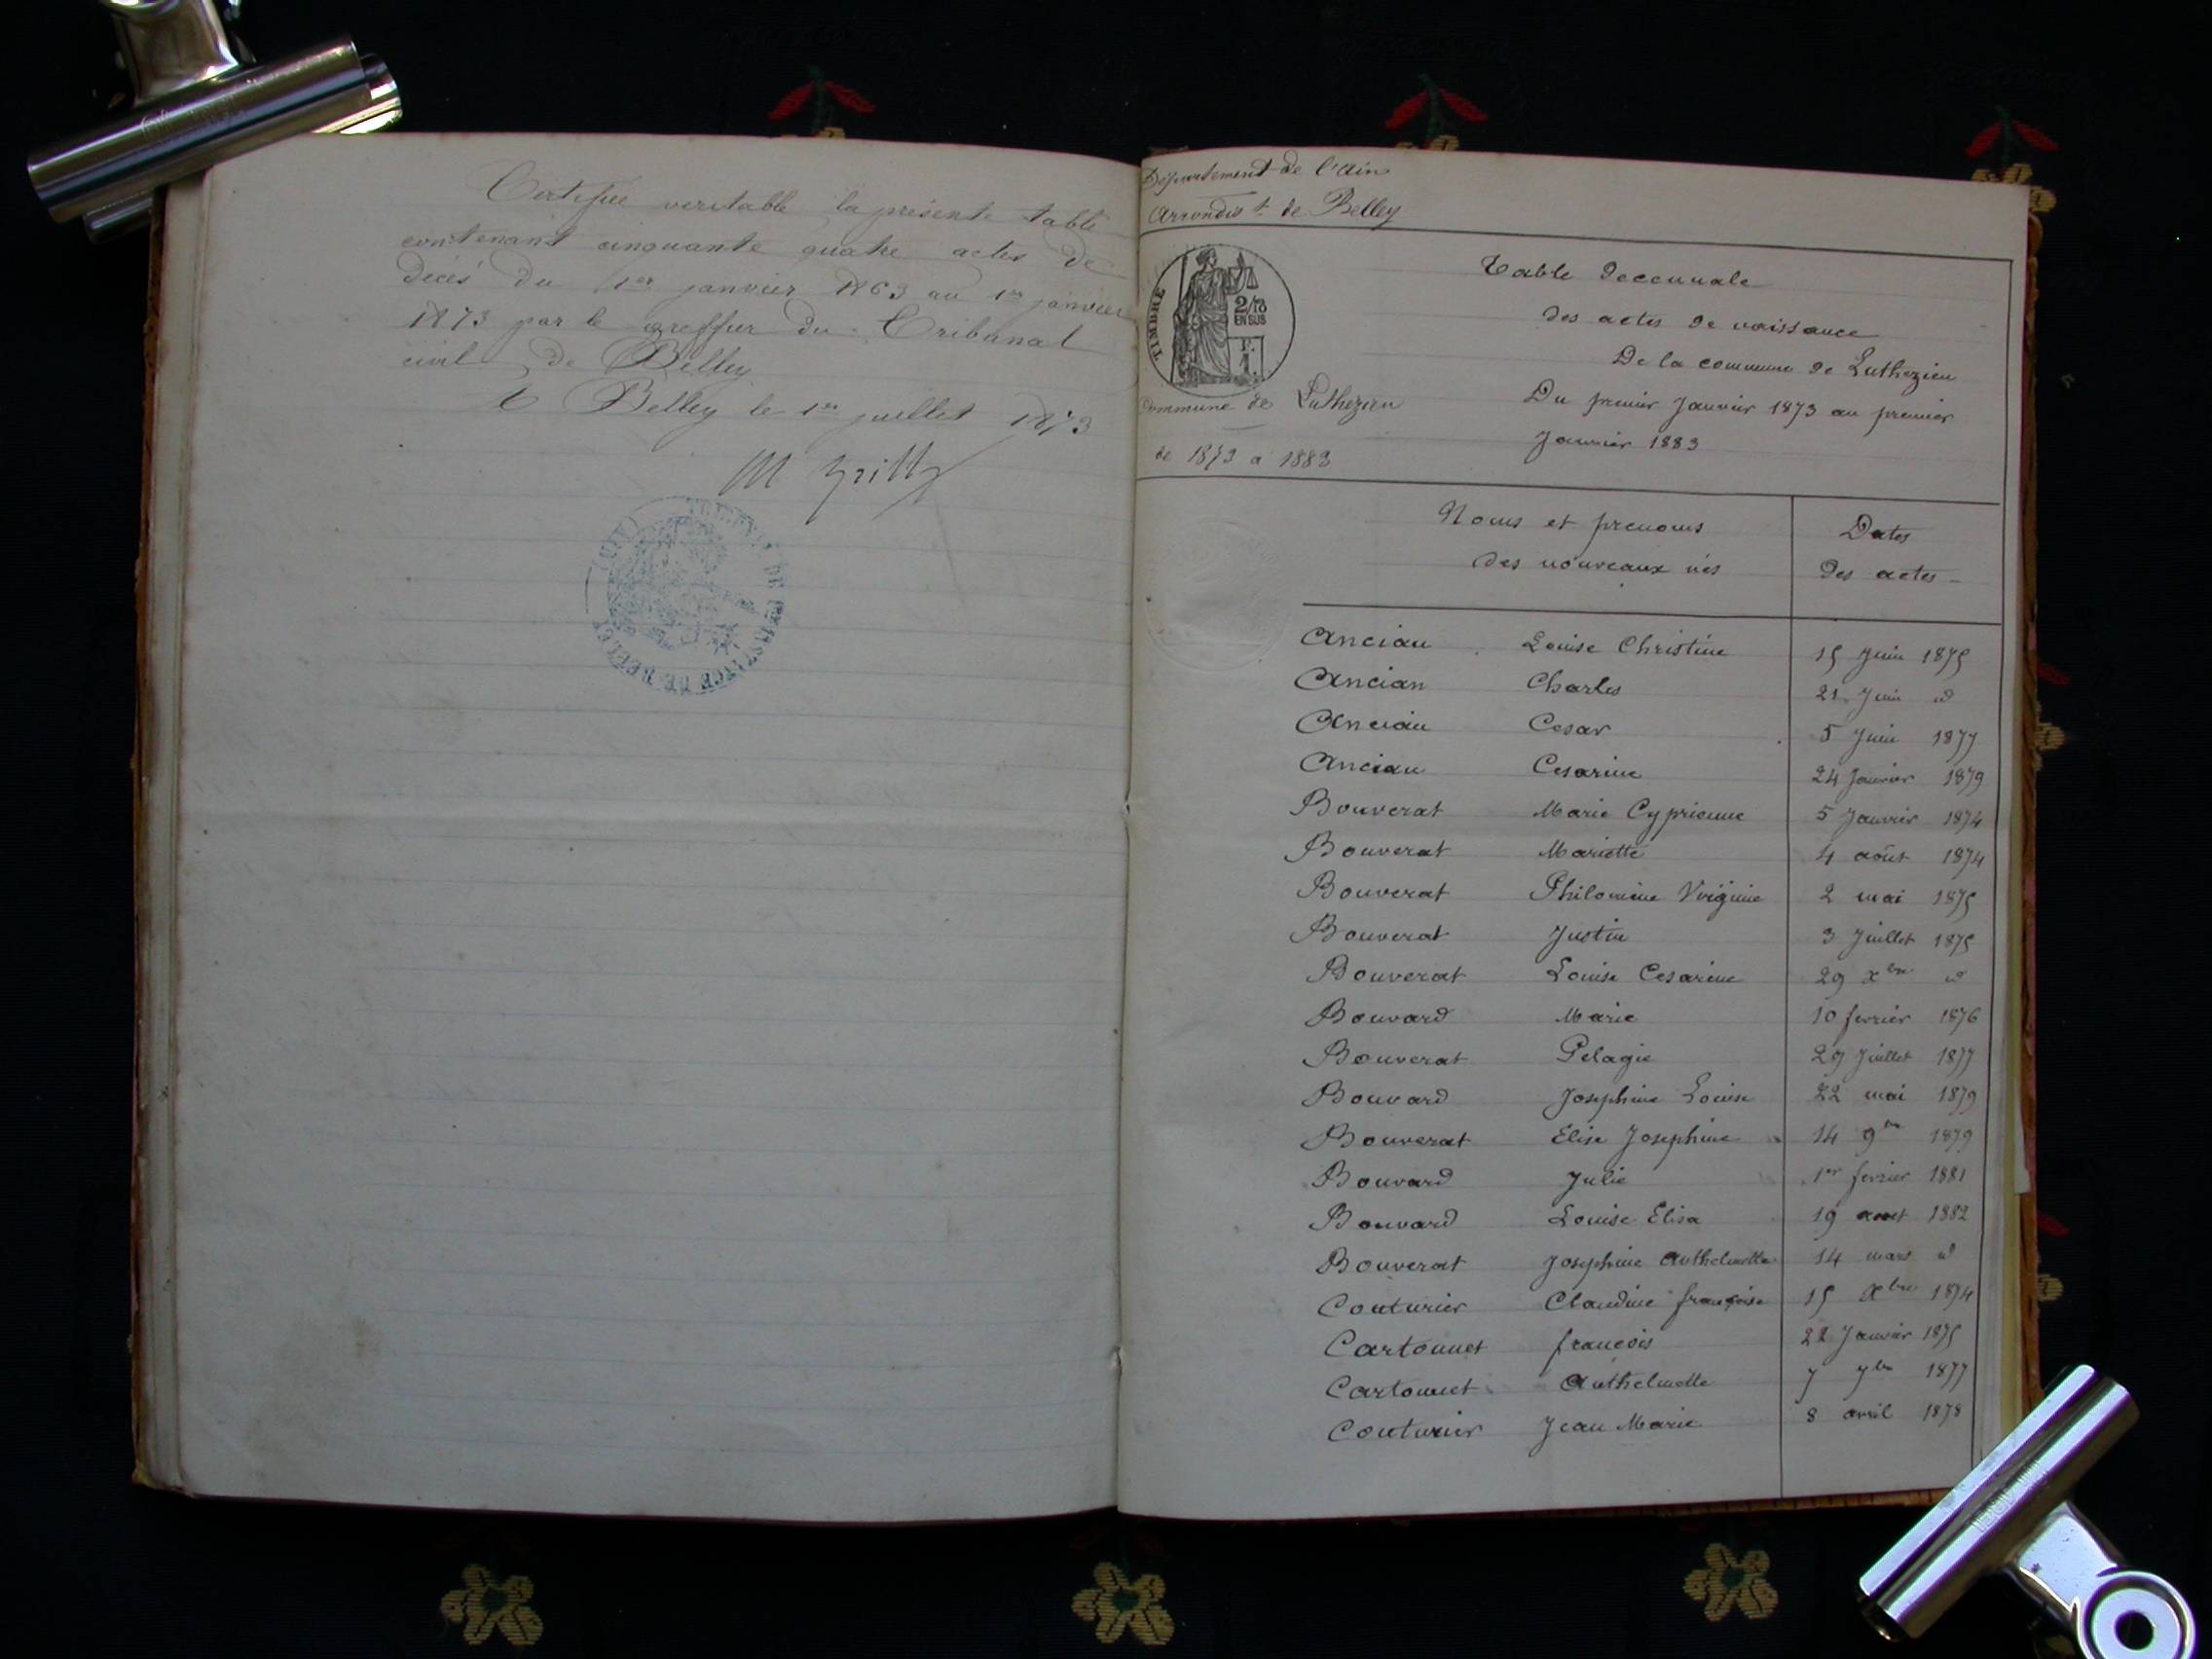 Certifiée veritable la présente table
contenant cinquante quatre actes de
décès du 1er janvier 1863 au 1er janvier
1873 par le greffier du Tribunal
civil de Belley
A Belley le 1er juillet 1873
TRIBUNAL DE 1ERE INSTANCE DE BELLEY (AIN)
Département de l'Ain
Arrondist de Belley
TIMBRE
2/10
EN SUS
F.
1.
Commune de Luthezieu
de 1873 a 1883
Table Decennale
des actes de naissance
De la commune de Luthezieu
Du premier Janvier 1873 au premier
Janvier 1883
Noms et prenoms
des nouveaux nés
Dates
Des actes -
Ancian Louise Christine 15 Juin 1875
Ancian Charles 21 Juin id
Ancian Cesar 5 Juin 1877
Ancian Cesarine 24 Janvier 1879
Bouverat Marie Cyprienne 5 Janvier 1874
Bouverat Mariette 4 août 1874
Bouverat Philomine Virginie 2 mai 1875
Bouverat Justin 3 Juillet 1875
Bouverat Louise Cesarine 29 Xbre id
Bouvard Marie 10 fevrier 1876
Bouverat Pelagie 29 Juillet 1877
Bouvard Josephine Louise 22 mai 1879
Bouverat Elise Josephine 14 9bre 1879
Bouvard Julie 1er fevrier 1881
Bouvard Louise Elisa 19 aout 1882
Bouverat Josephine Anthelmette 14 mars id
Couturier Claudine françoise 15 Xbre 1874
Cartonnet francois 22 Janvier 1875
Cartonnet Anthelmette 7 7bre 1877
Couturier Jean Marie 8 avril 1878